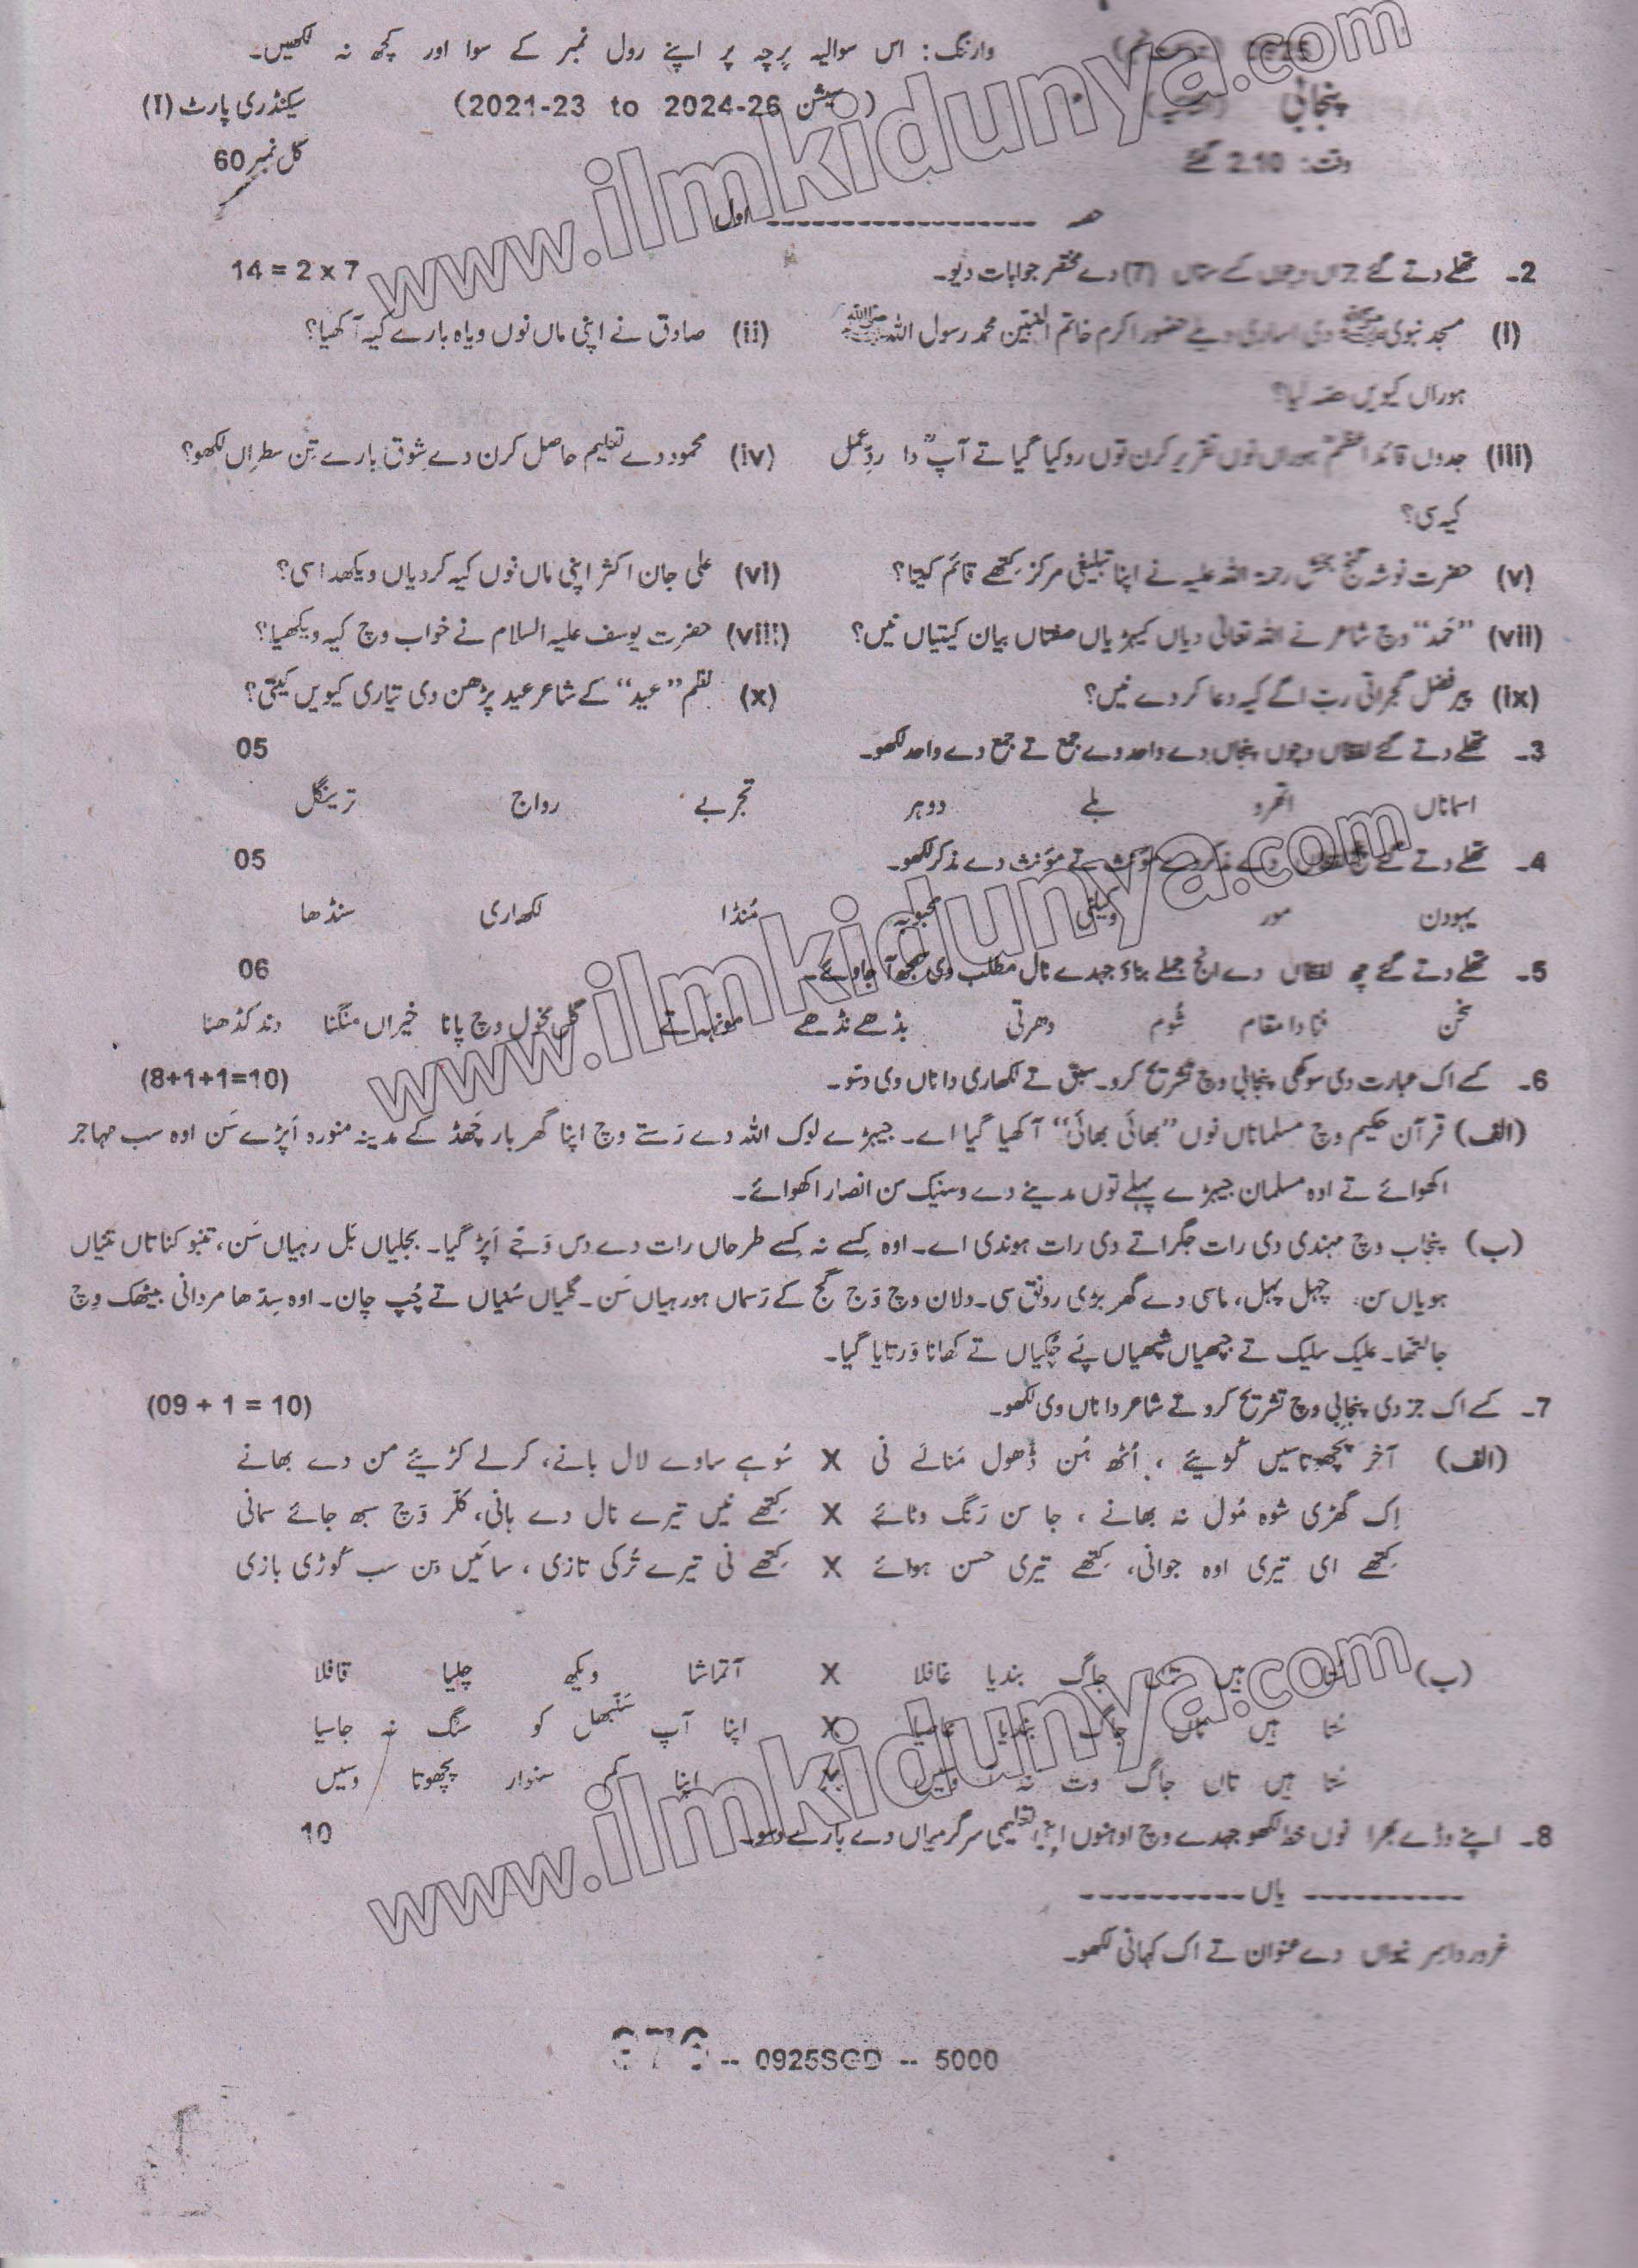 وارننگ: اس سوالیہ پرچہ پر اپنے رول نمبر کے سوا اور کچھ نہ لکھیں۔
پنجابی (سیشن 2021-23 to 2024-26) سیکنڈری پارٹ (I)
وقت: 2.10 گھنٹے کل نمبر 60
حصہ اول
2۔ تھلے دتے گئے جزاں وچوں کسے ستاں (7) دے مختصر جوابات دیو۔ 14 = 2 x 7
(i) مسجد نبویﷺ دی اساری ویلے حضور اکرم خاتم النبیّن محمد رسول اللہﷺ (ii) صادق نے اپنی ماں نوں ویاہ بارے کیہ آکھیا؟
ہوراں کیویں حصہ لیا؟
(iii) جدوں قائد اعظمؒ ہوراں نوں تقریر کرن توں روکیا گیا تے آپؒ دا ردِعمل (iv) محمود دے تعلیم حاصل کرن دے شوق بارے تِن سطراں لکھو؟
کیہ سی؟
(v) حضرت نوشہ گنج بخش رحمۃ اللہ علیہ نے اپنا تبلیغی مرکز کِتھے قائم کیتا؟ (vi) علی جان اکثر اپنی ماں نوں کیہ کردیاں ویکھدا سی؟
(vii) ”حمد“ وچ شاعر نے اللہ تعالیٰ دیاں کیہڑیاں صفتاں بیان کیتیاں نیں؟ (viii) حضرت یوسف علیہ السلام نے خواب وچ کیہ ویکھیا؟
(ix) پیر فضل گجراتی ربّ اگے کیہ دعا کردے نیں؟ (x) نظم ”عید“ کے شاعر عید پڑھن دی تیاری کیویں کیتی؟
3۔ تھلے دتے گئے لفظاں وچوں پنجاں دے واحد دے جمع تے جمع دے واحد لکھو۔ 05
اسماناں اتھرو بلے دوہر تجربے رواج ترینگل
4۔ تھلے دتے گئے لفظاں دے مذکر دے مؤنث تے مؤنث دے مذکر لکھو۔ 05
یہودن مور وکیلنی محبوبہ مُنڈا لکھاری سنڈھا
5۔ تھلے دتے گئے چھ لفظاں دے انج جملے بناؤ جہدے نال مطلب دی سمجھ آ جاوے۔ 06
سخن فنا دا مقام شُوم دھرتی بڈھے نڈھے مونہہ تے گل مخول وچ پانا خیراں منگنا دند کڈھنا
6۔ کسے اک عبارت دی سوکھی پنجابی وچ تشریح کرو۔ سبق تے لکھاری دا ناں وی دسّو۔ (8+1+1=10)
(الف) قرآن حکیم وچ مسلماناں نوں ”بھائی بھائی“ آکھیا گیا اے۔ جیہڑے لوک اللہ دے رَستے وچ اپنا گھر بار چھڈ کے مدینہ منورہ اَپڑے سَن اوہ سب مہاجر
اکھوائے تے اوہ مسلمان جیہڑے پہلے توں مدینے دے وسنیک سن انصار اکھوائے۔
(ب) پنجاب وچ مہندی دی رات جگراتے دی رات ہوندی اے۔ اوہ کِسے نہ کِسے طرحاں رات دے دس وَجے اَپڑ گیا۔ بجلیاں بَل رہیاں سَن، تنبو کناتاں تنیاں
ہویاں سن۔ چہل پہل، ماسی دے گھر بڑی رونق سی۔ دلان وچ وَج گج کے رَسماں ہو رہیاں سَن۔ گلیاں سُنیاں تے چُپ چان۔ اوہ سِدّھا مردانی بیٹھک وِچ
جا لتھا۔ علیک سلیک تے جپھیاں شپھیاں پَے چُکیاں تے کھانا وَرتایا گیا۔
7۔ کسے اک جز دی پنجابی وچ تشریح کرو تے شاعر دا ناں وی لکھو۔ (09 + 1 = 10)
(الف) آخر پچھوتاسیں کُڑیئے، اُٹھ ہُن ڈھول مَنائے نی X سُوہے ساوے لال بانے، کر لے کڑیئے من دے بھانے
اِک گھڑی شوہ مُول نہ بھانے، جا سن رَنگ وٹائے X کِتھے نیں تیرے نال دے ہانی، کلّر وَچ سبھ جائے سمانی
کِتھے ای تیری اوہ جوانی، کِتھے تیری حسن ہوائے X کِتھے نی تیرے تُرکی تازی، سائیں بن سب کُوڑی بازی
(ب) سُتا ہیں تاں جاگ بندیا غافلا X آتماشا ویکھ چلیا قافلا
سُتا ہیں تاں جاگ بندیا عاصیا X اپنا آپ سَنبھل کو سنگ نہ جاسیا
سُتا ہیں تاں جاگ وت نہ X اپنا کم سنوار پچھوتا وسیں
8۔ اپنے وڈے بھرا نوں خط لکھو جہدے وچ اوہنوں اپنی تعلیمی سرگرمیاں دے بارے دسو۔ 10
یاں
غرور دا سِر نیواں دے عنوان تے اک کہانی لکھو۔
-- 0925SGD -- 5000
www.ilmkidunya.com
www.ilmkidunya.com
www.ilmkidunya.com